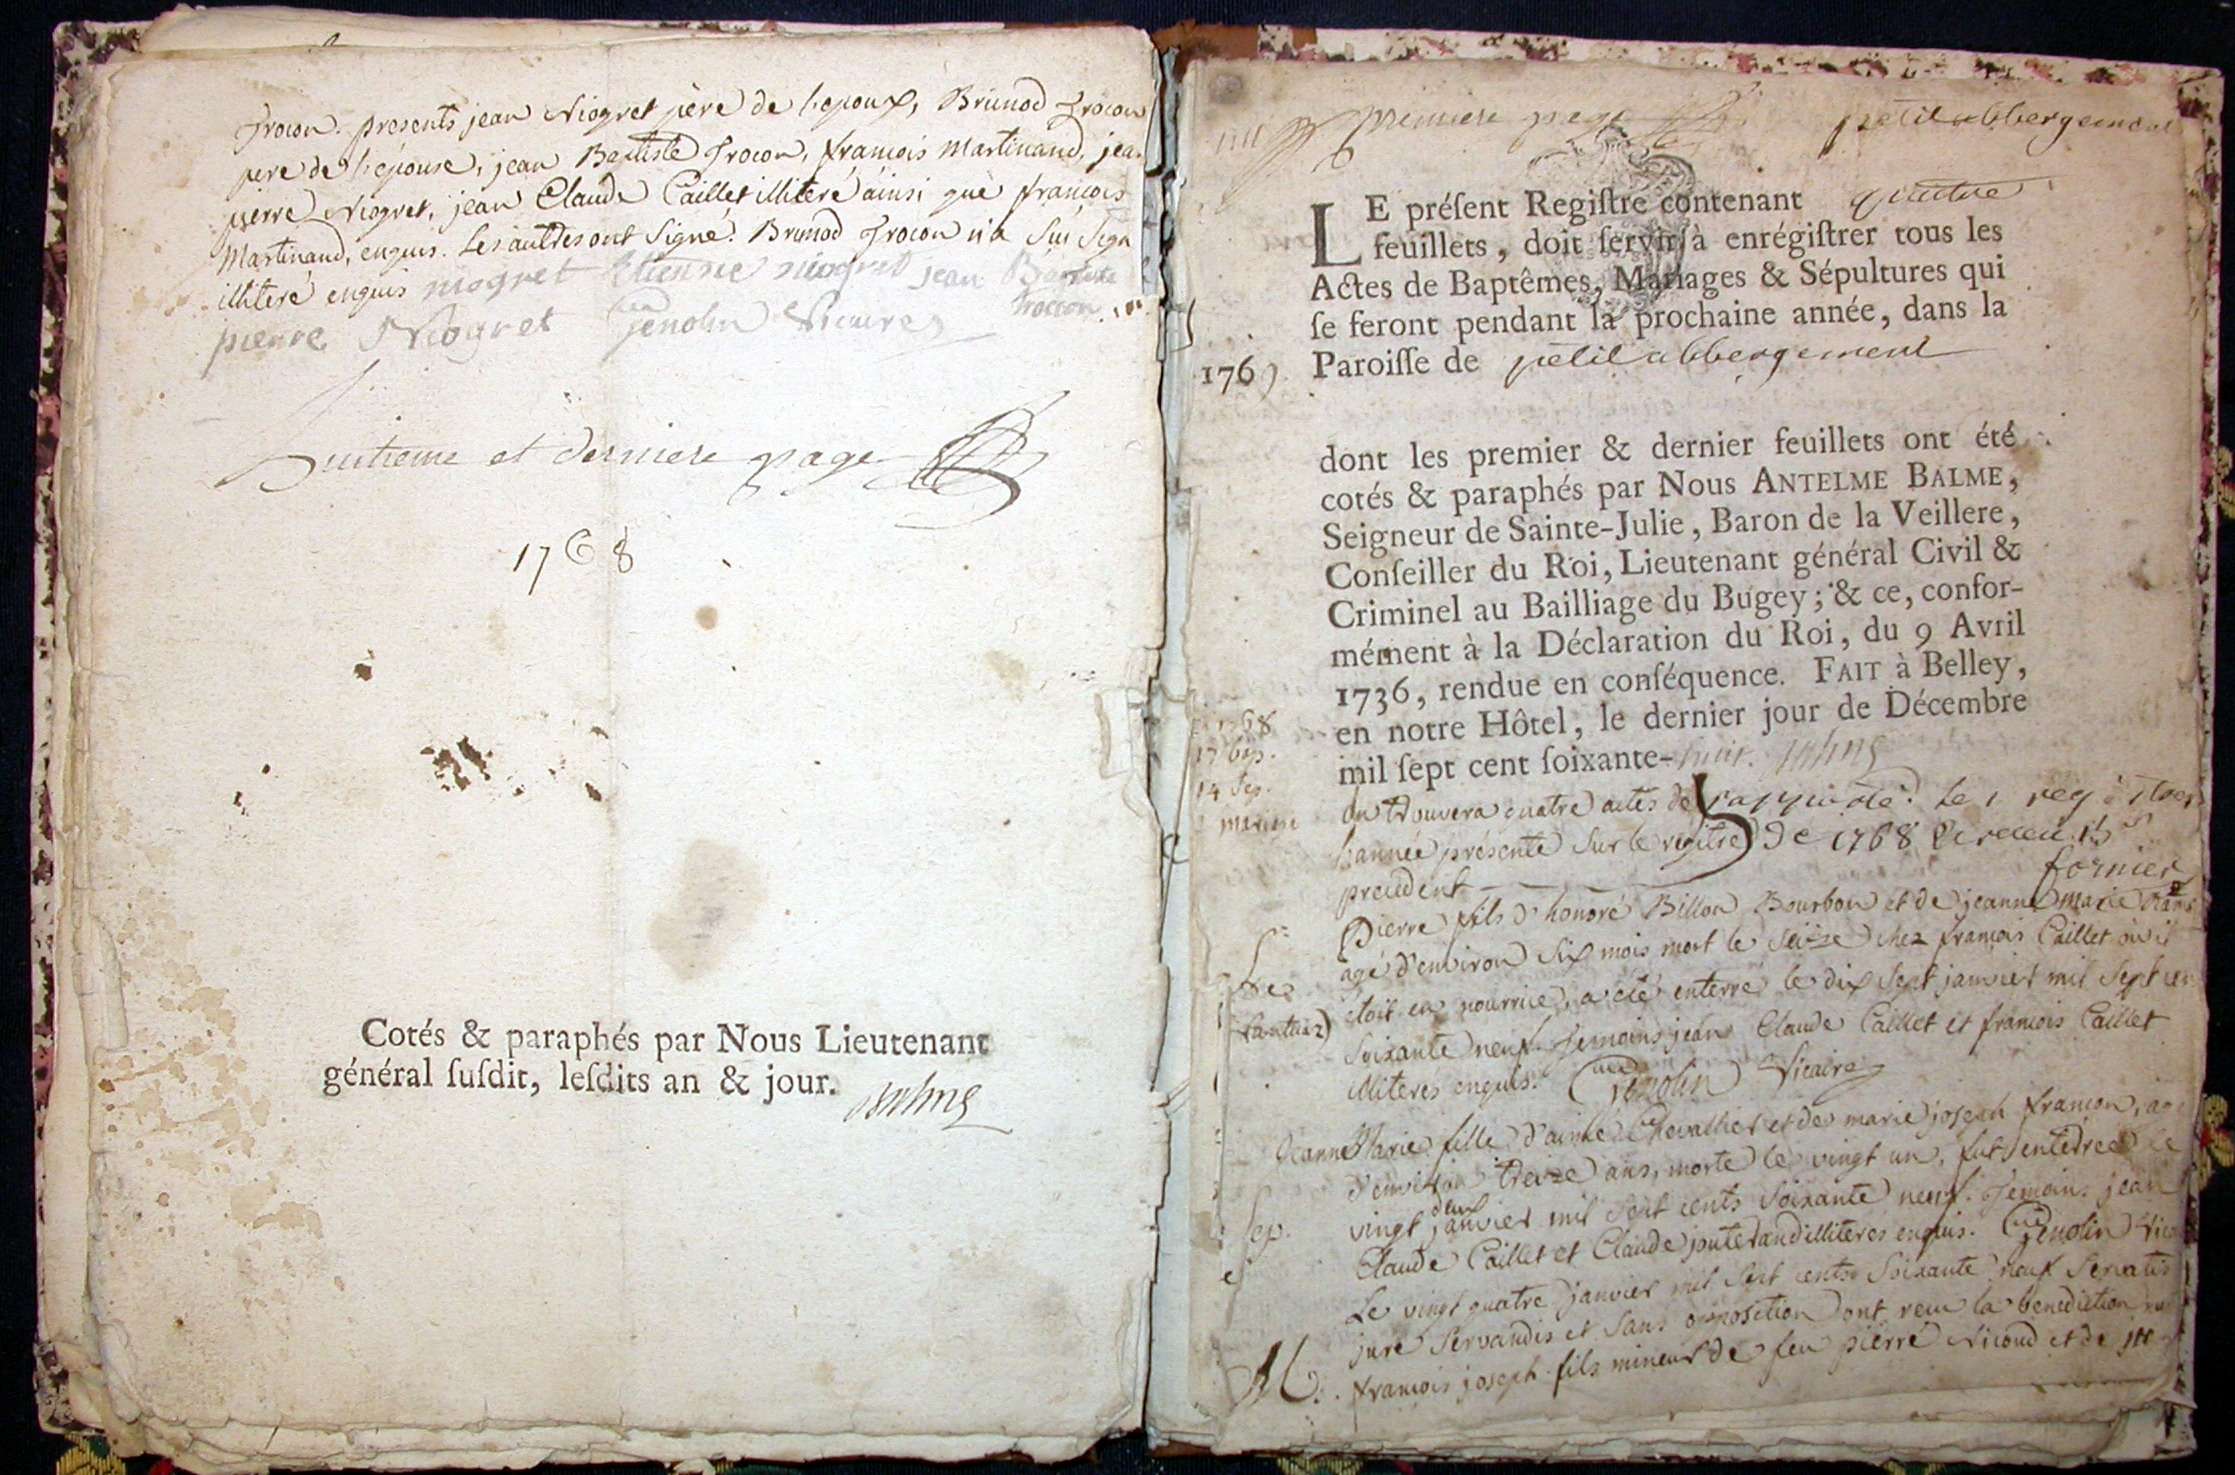 Trocon. presents jean Niogret père de l'epoux, Brunod Trocon
pere de l'epouse, jean Baptiste Trocon, francois Martinand, jean
pierre Niogret, jean Claude Caillet illiteré ainsi que francois
Martinand, enquis. Les autres ont signé. Brunod Trocon n'a sçu sign
illiteré enquis niogret Etienne niogret jean Baptiste
trocon
pierre Niogret Genolin Vicaire
huitieme et derniere page
1768
Cotés & paraphés par Nous Lieutenant
général ſuſdit, leſdits an & jour. Balme
premiere page petit abbergement
LE préſent Regiſtre contenant quatre
feuillets, doit ſervir à enrégiſtrer tous les
Actes de Baptêmes, Mariages & Sépultures qui
ſe feront pendant la prochaine année, dans la
1769 Paroiſſe de petit abbergement
dont les premier & dernier feuillets ont été
cotés & paraphés par Nous ANTELME BALME,
Seigneur de Sainte-Julie, Baron de la Veillere,
Conſeiller du Roi, Lieutenant général Civil &
Criminel au Bailliage du Bugey; & ce, confor-
mément à la Déclaration du Roi, du 9 Avril
1736, rendue en conſéquence. FAIT à Belley,
en notre Hôtel, le dernier jour de Décembre
mil ſept cent ſoixante-huit. Balme
1768
17 bap.
14 Sep.
mariage
on trouvera quatre actes de
l'année présente sur le registre de 1768
precedent
fornier
Pierre fils d'honoré Billon Bourbon et de jeanne marie
agé d'environ six mois mort le seize chez francois Caillet où il
étoit en nourrice, a été enterré le dix sept janvier mil sept cen
soixante neuf. Temoins jean Claude Caillet et francois Caillet
illiteres enquis. Genolin Vicaire
Jeanne Marie fille d'aimé Chevallier et de marie joseph francon, agé
d'environ treize ans, morte le vingt un, fut enterrée le
vingt deux janvier mil sept cents soixante neuf. Temoins jean
Sep. Claude Caillet et Claude jouterand illiteres enquis. Genolin Vic
Le vingt quatre janvier mil sept cents soixante neuf servatis
jure servandis et sans opposition ont recu la benediction
M. francois joseph fils mineur de feu pierre Nicoud et de